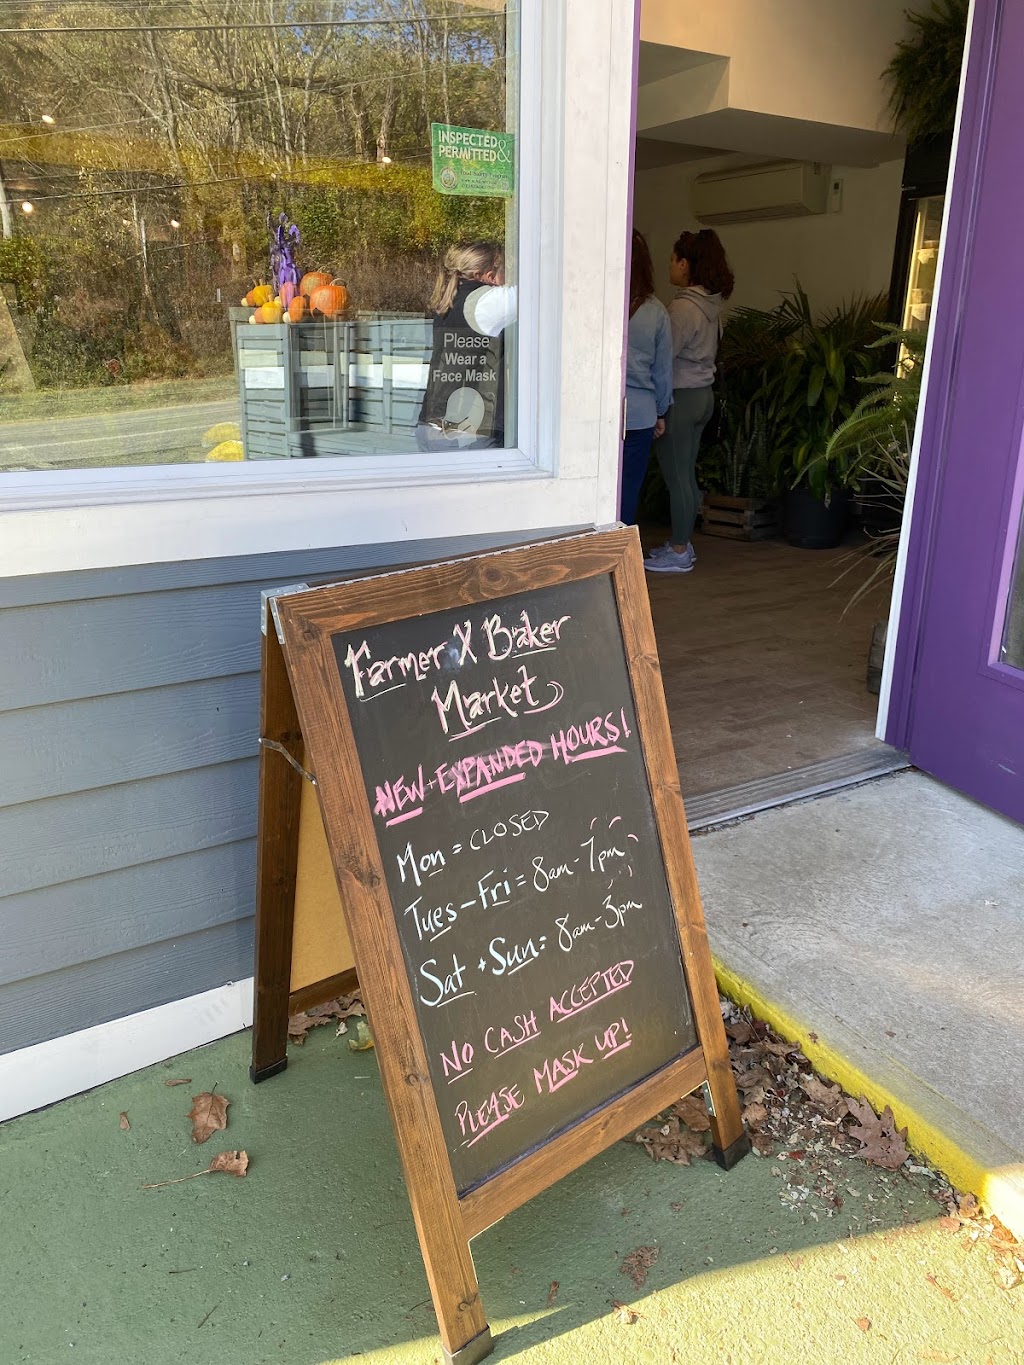 INSPECTED &
PERMITTED
Please
Wear a
Face Mask
Farmer X Baker
Market
NEW + EXPANDED HOURS!
Mon = CLOSED
Tues - Fri = 8am - 7pm
Sat + Sun = 8am - 3pm
NO CASH ACCEPTED
PLEASE MASK UP!